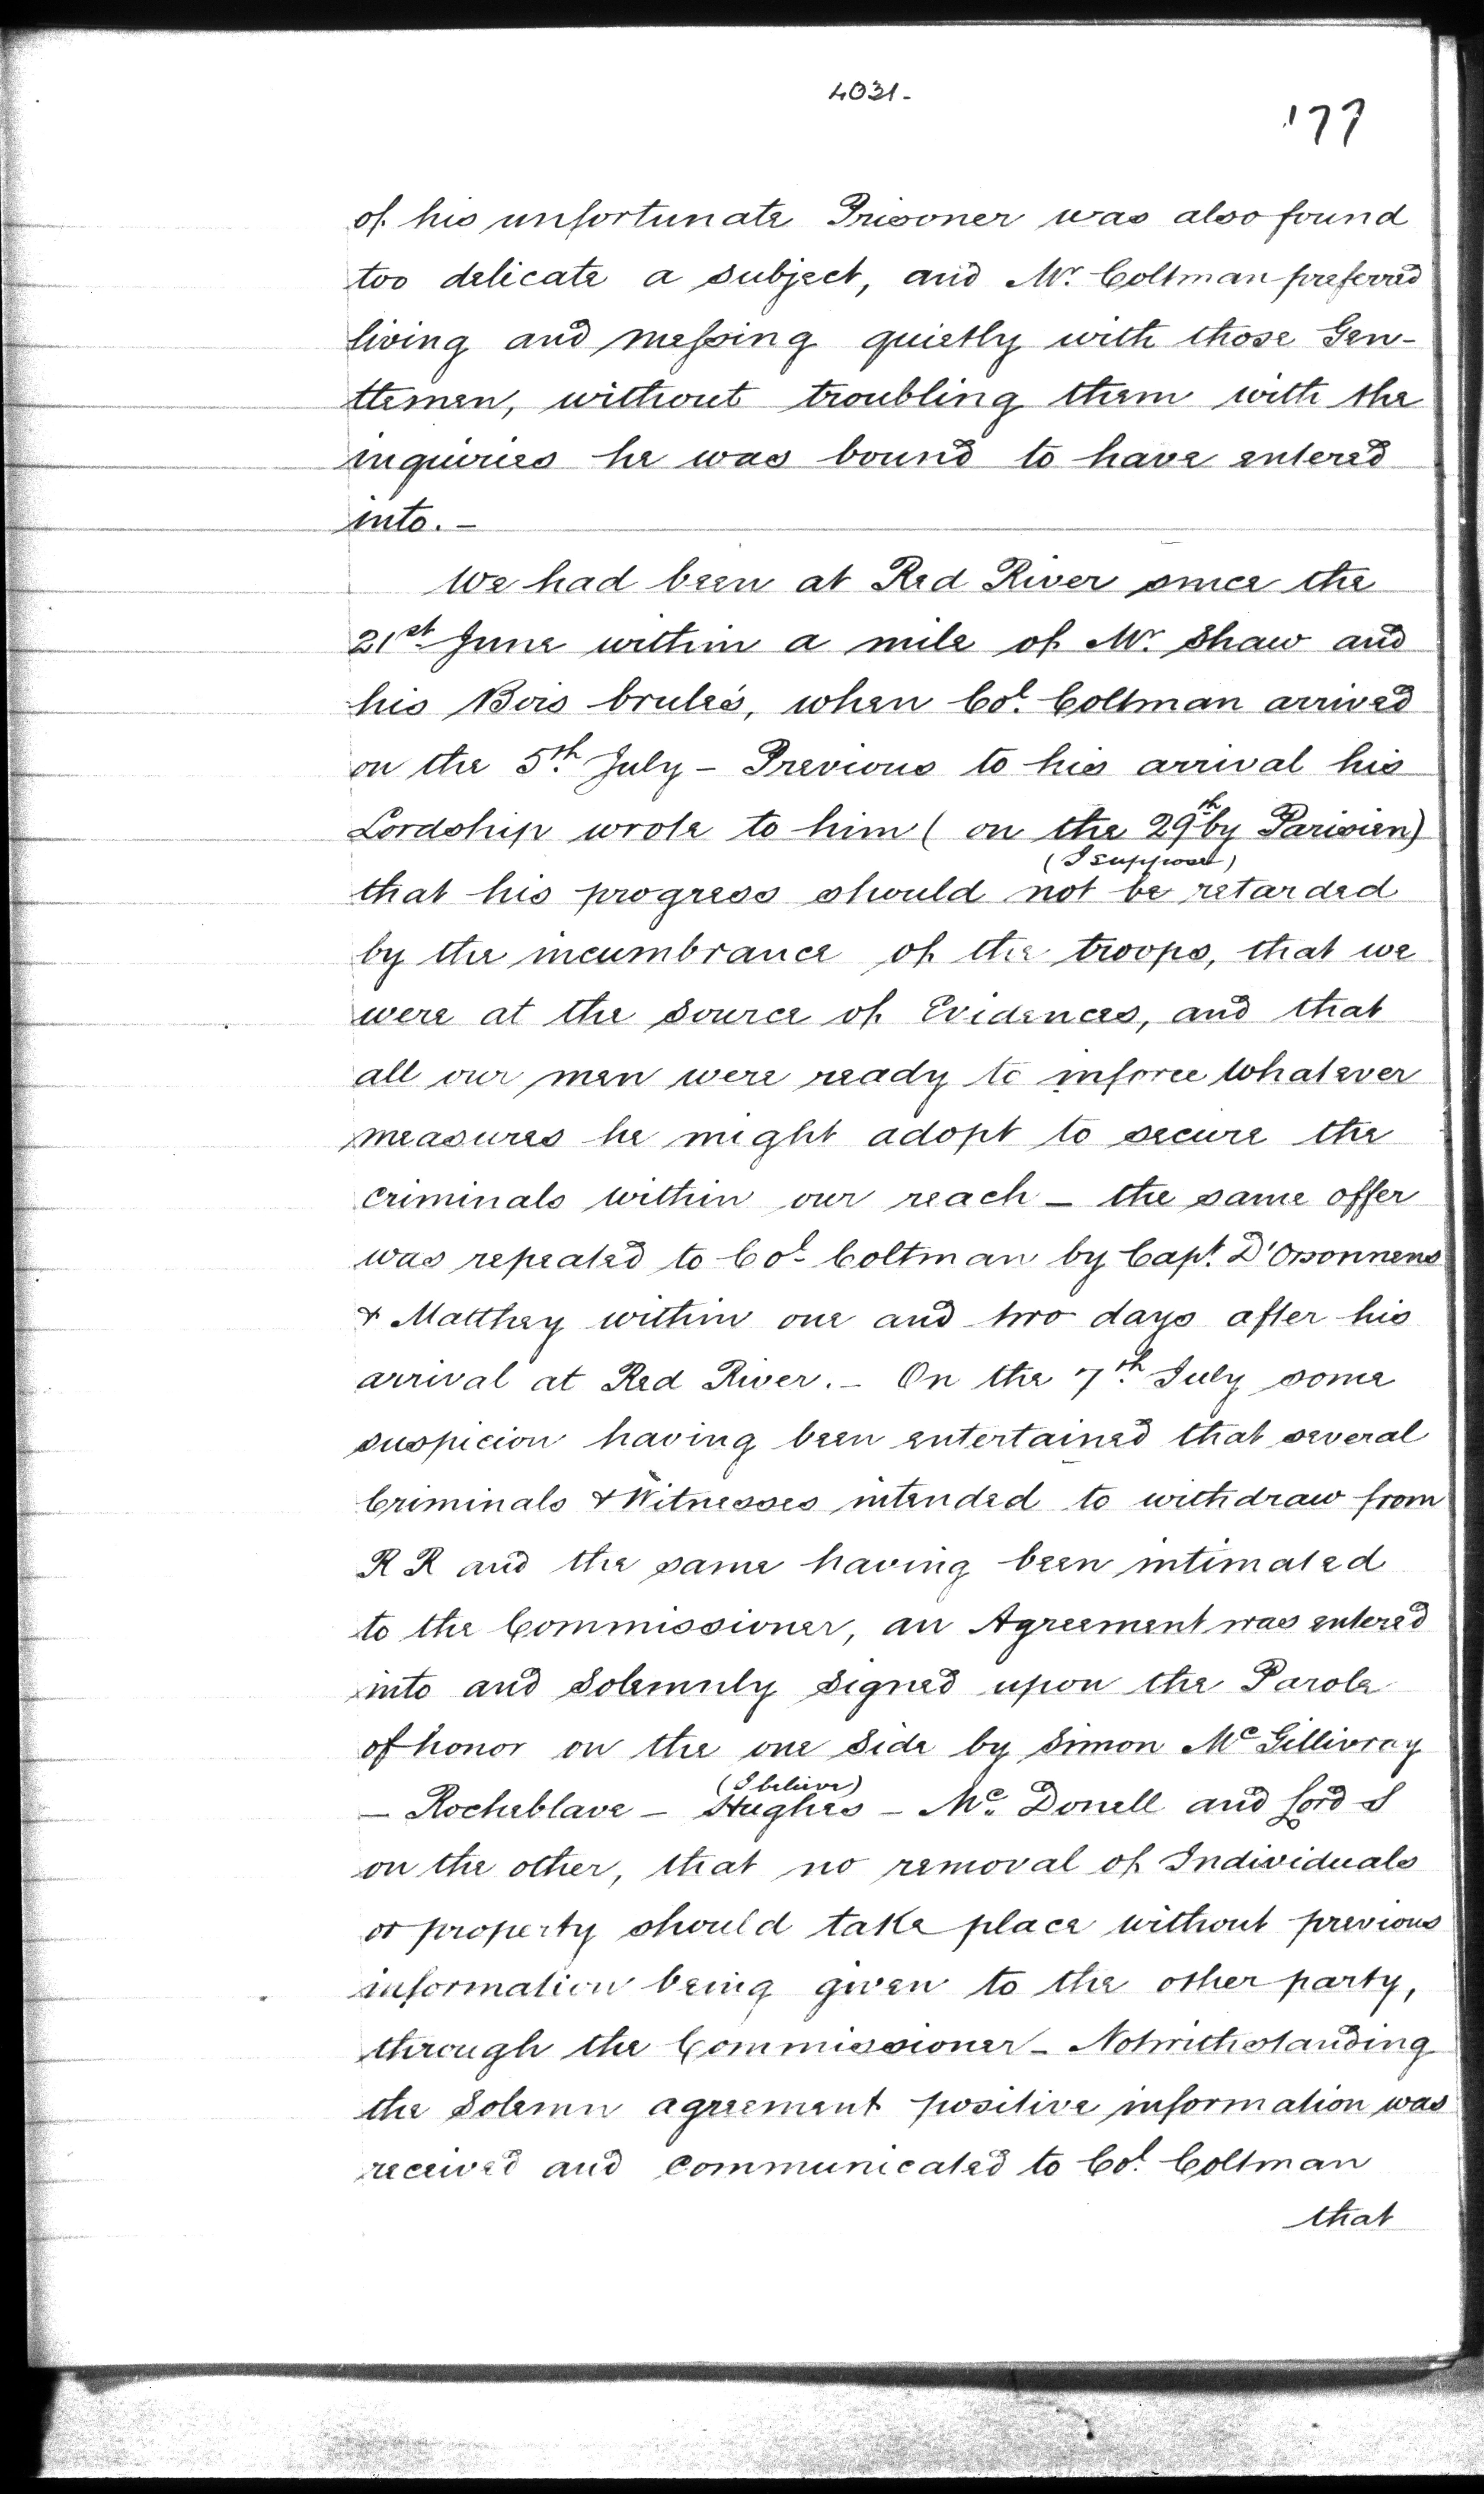 4031-
177
of his unfortunate Prisoner was also found
too delicate a subject, and Mr. Coltman preferred
living and messing quietly with those Gen-
tlemen, without troubling them with the
inquiries he was bound to have entered
into. -
We had been at Red River since the
21st June within a mile of Mr. Shaw and
his Bois brulés, when Col. Coltman arrived
on the 5th. July - Previous to his arrival his
Lordship wrote to him ( on the 29th by Parisien)
(I suppose)
that his progress should not be retarded
by the incumbrance of the troops, that we
were at the source of Evidences, and that
all our men were ready to inforce whatever
measures he might adopt to secure the
criminals within our reach - the same offer
was repeated to Col. Coltman by Capt. D'Orsonnens
& Matthey within one and two days after his
arrival at Red River. - On the 7th. July some
suspicion having been entertained that several
Criminals & Witnesses intended to withdraw from
R R and the same having been intimated
to the Commissioner, an Agreement was entered
into and Solemnly Signed upon the Parole
of honor on the one Side by Simon McGillivray
(I believe)
- Rocheblave - Hughes - Mc. Donell and Lord S
on the other, that no removal of Individuals
or property should take place without previous
information being given to the other party,
through the Commissioner - Notwithstanding
the Solemn agreement positive information was
received and communicated to Col. Coltman
that